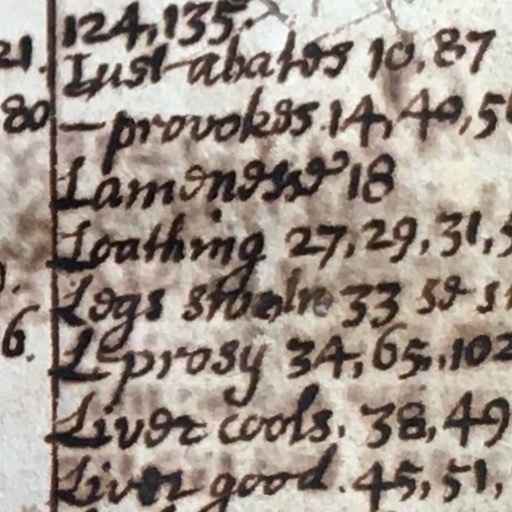 124, 135.
21. Lust abates 10, 87
80 — provokes. 14, 40, 5
Lameness 18
Loathing 27, 29, 31,
Legs 33
6. Leprosy 34, 65, 102
Liver cools. 38, 49
Liver good. 45, 51,